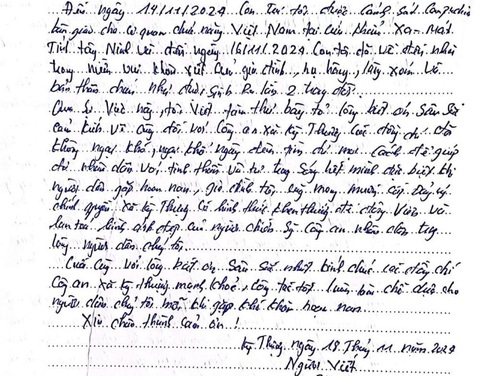 Đến ngày 14/11/2024 Con tôi được Cảnh sát Campuchia
bàn giao cho cơ quan chức năng Việt Nam tại cửa khẩu Xa-Mát
Tỉnh tây Ninh và đến ngày 16/11/2024 Con tôi đã về đến nhà
trong niềm vui khôn xiết của gia đình, họ hàng, làng xóm và
bản thân cháu như được sinh ra lần 2 trong đời.
Qua sự việc này, tôi viết tâm thư bày tỏ lòng biết ơn sâu sắc
cảm kích vô cùng đối với Công an xã Kỳ Thượng các đồng chí đã
không ngại khó, ngại khổ ngày đêm tìm đủ mọi cách để giúp
đỡ nhân dân với tinh thần và tư trong sáng hết mình đặc biệt khi
người dân gặp hoạn nạn, gia đình tôi mong muốn cấp Đảng uỷ
chính quyền xã kỳ Thượng có hình thức khen thưởng để động viên và
lan toả hình ảnh đẹp của người chiến sỹ Công an nhân dân trong
lòng người dân chúng tôi.
Cuối cùng với lòng biết ơn sâu sắc nhất kính chúc các đồng chí
Công an xã kỳ thượng mạnh khoẻ, công tác tốt luôn là chỗ dựa cho
người dân chúng tôi mỗi khi gặp khó khăn hoạn nạn.
Xin chân thành cảm ơn!
Kỳ Thượng ngày 18 Tháng 11 năm 2024
Người Viết